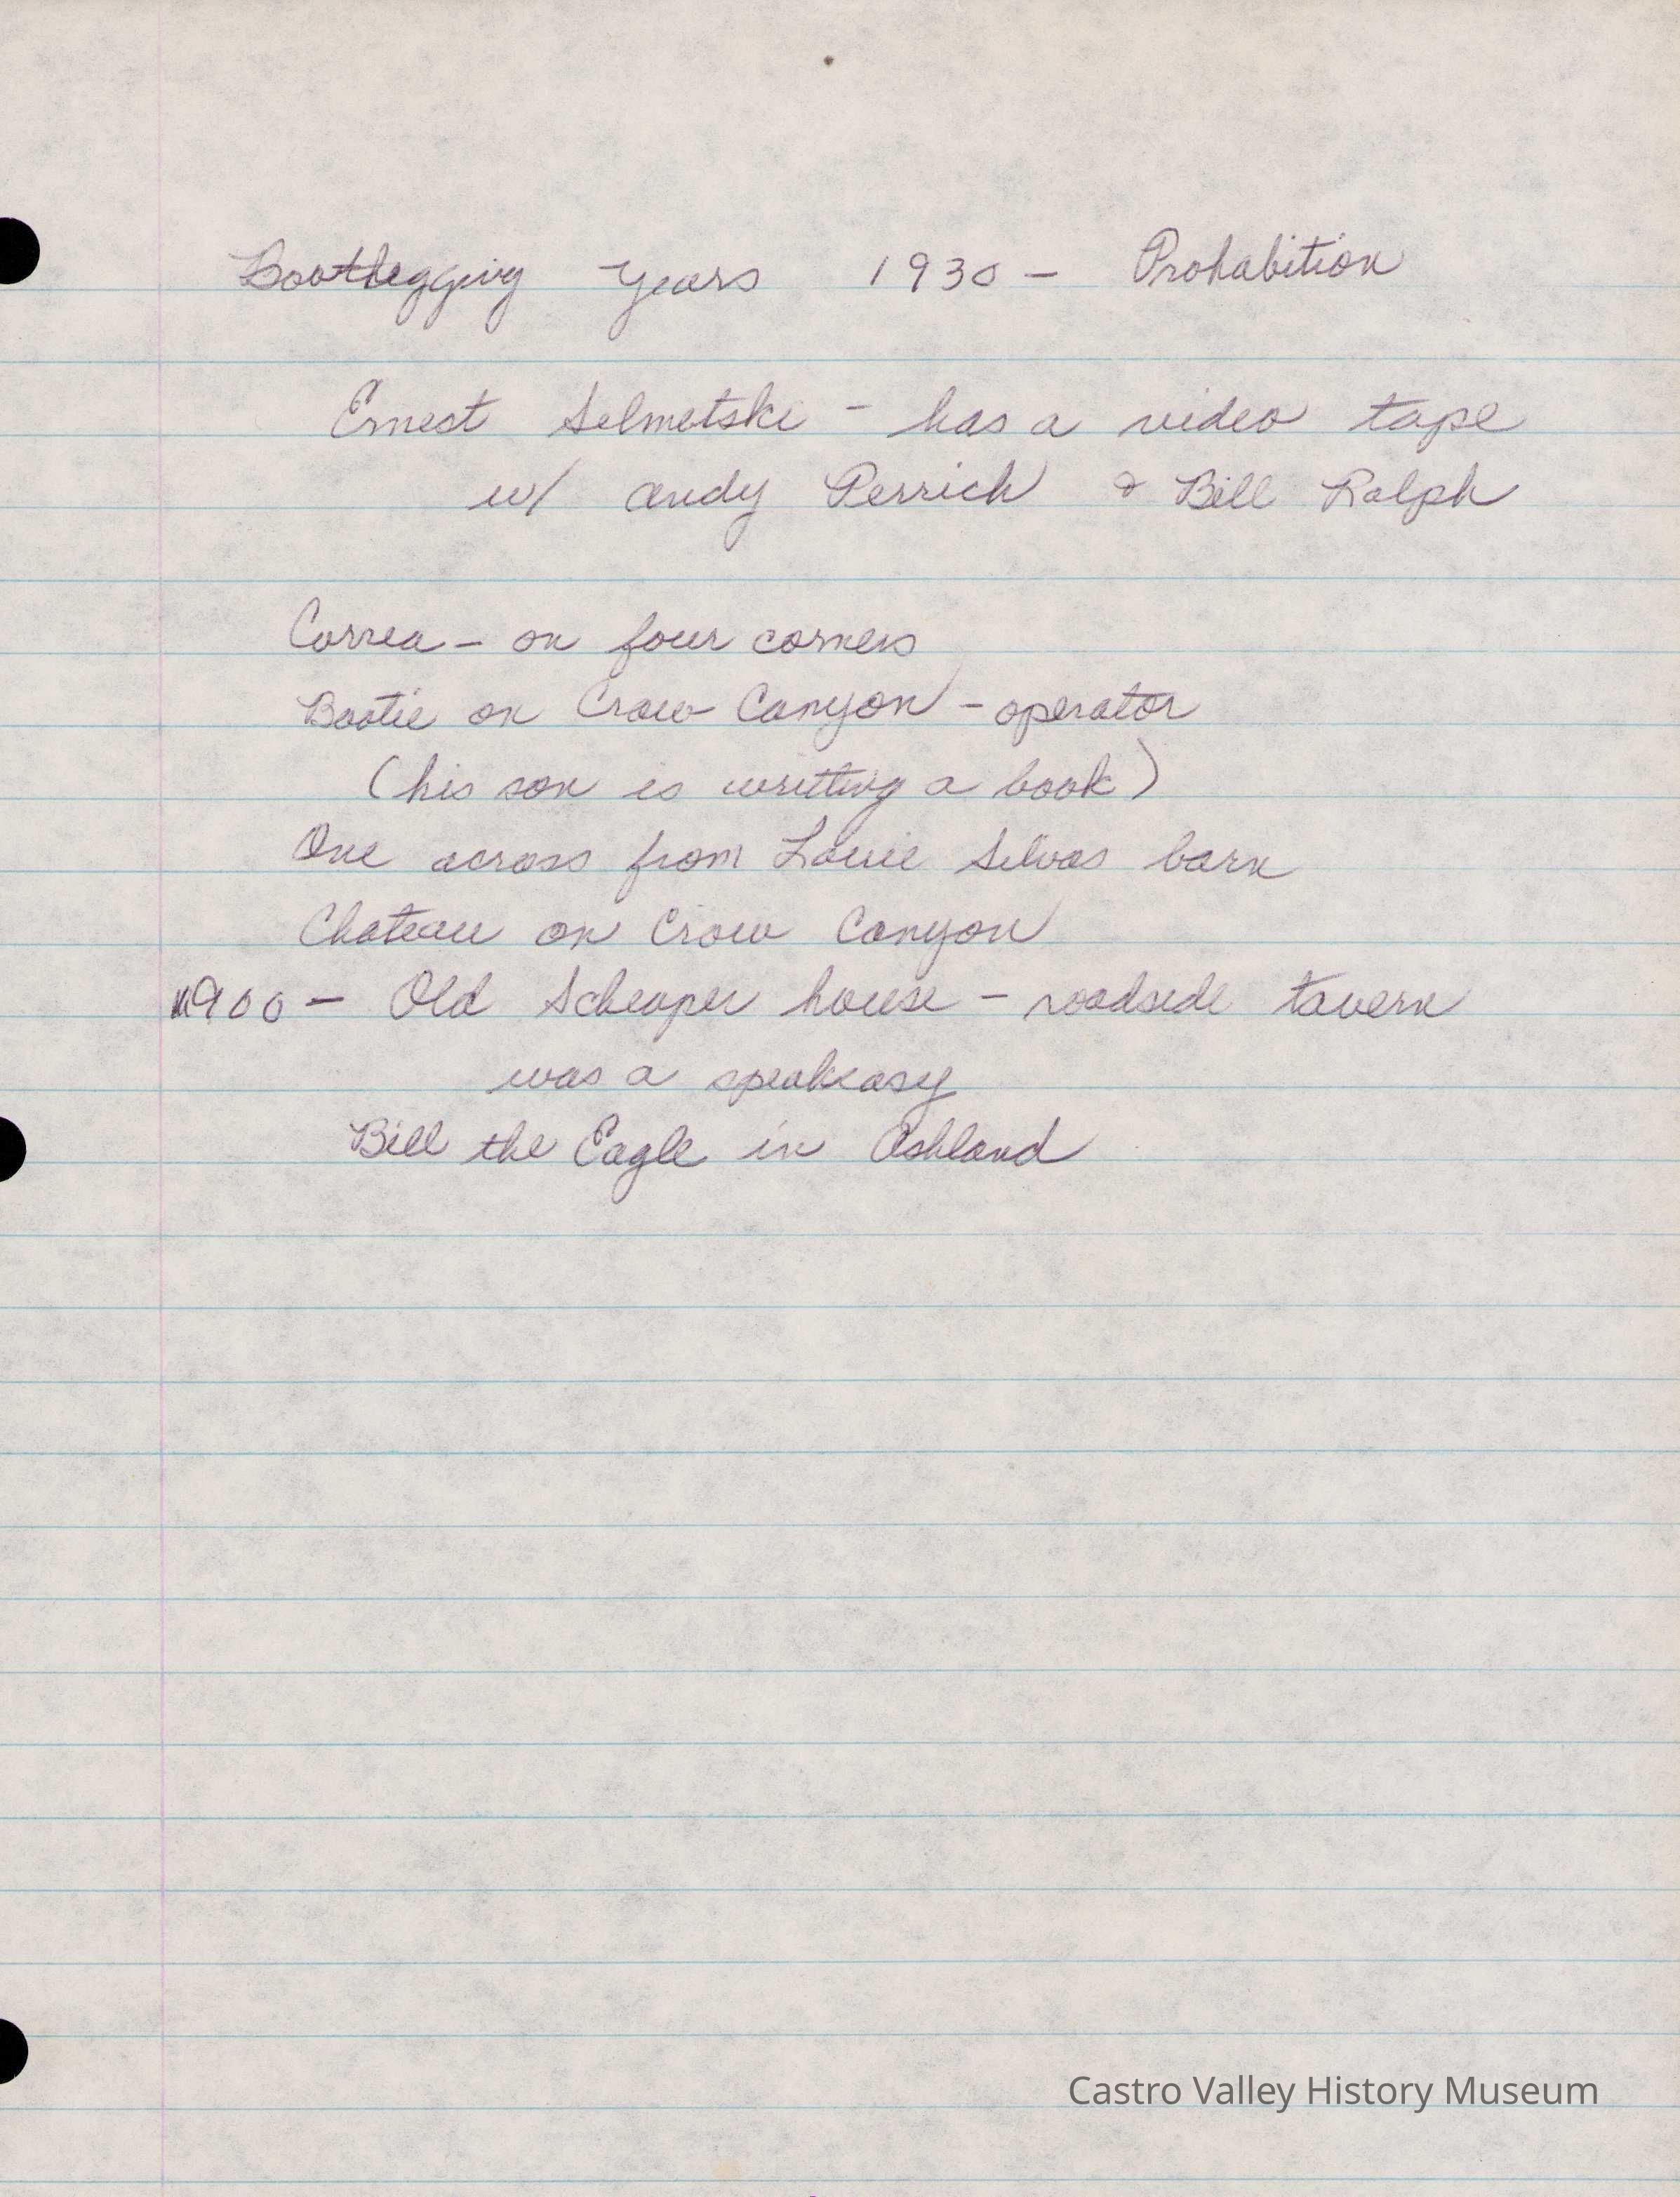 Bootlegging Years 1930 - Prohabition
Ernest Selmetski - has a video tape
w/ Andy Perrich & Bill Ralph
Correa - on four corners
Bootie on Crow Canyon - operator
(his son is writting a book)
One across from Louie Silvas barn
Chateau on Crow Canyon
1900 - Old Scheaper house - roadside tavern
was a speakeasy
Bill the Eagle in Ashland
Castro Valley History Museum